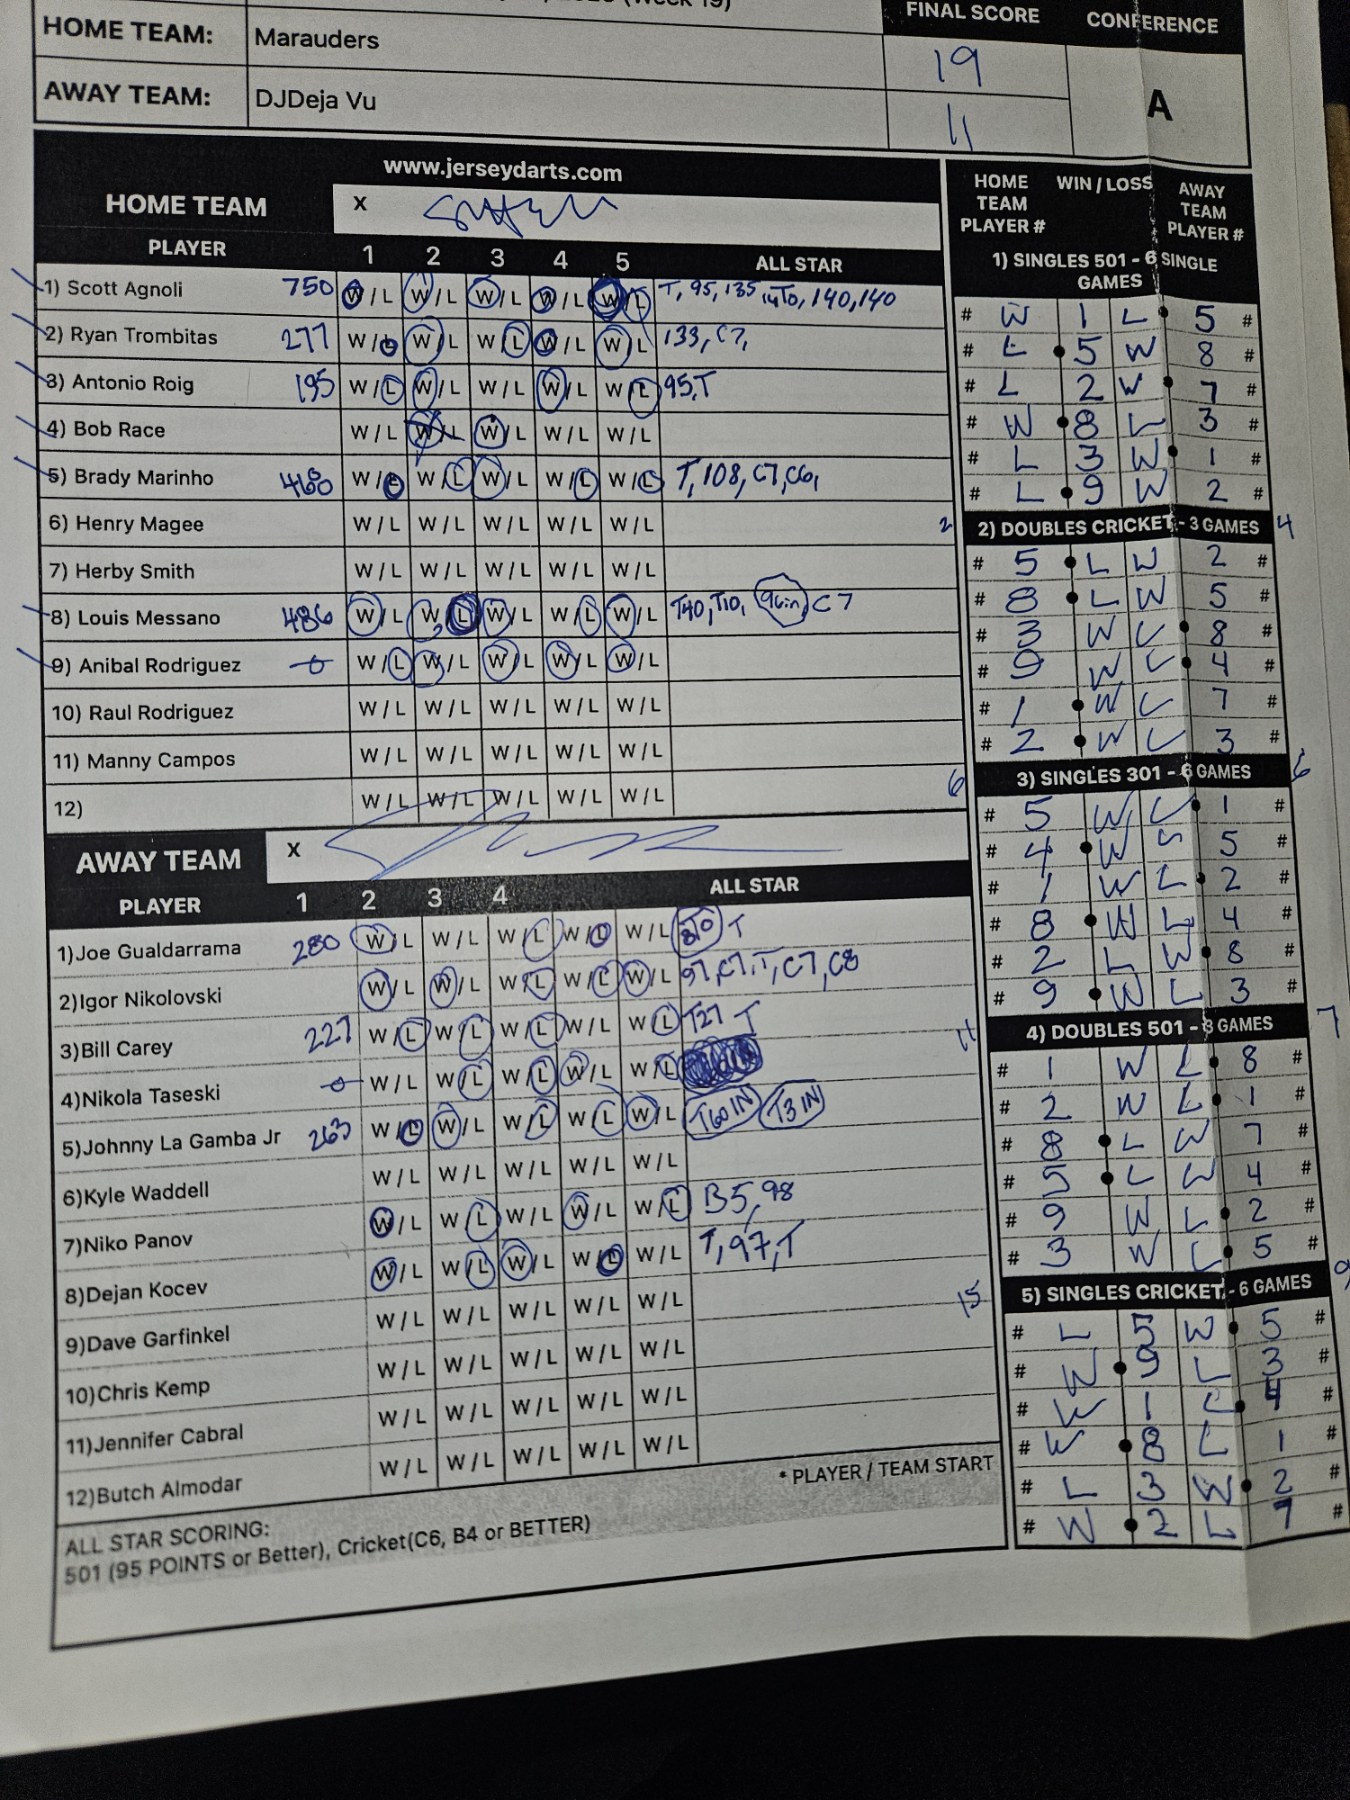 (Week 19)
FINAL SCORE CONFERENCE
HOME TEAM: Marauders 19
AWAY TEAM: DJDeja Vu 11 A
www.jerseydarts.com
HOME TEAM X
PLAYER 1 2 3 4 5 ALL STAR
1) Scott Agnoli 750 W/L W/L W/L W/L W/L T, 95, 135, 140, 140
2) Ryan Trombitas 277 W/L W/L W/L W/L W/L 133, C7,
3) Antonio Roig 195 W/L W/L W/L W/L W/L 95, T
4) Bob Race W/L W/L W/L W/L W/L
5) Brady Marinho W/L W/L W/L W/L W/L T, 108, C7, C6,
6) Henry Magee W/L W/L W/L W/L W/L 2
7) Herby Smith W/L W/L W/L W/L W/L
8) Louis Messano 486 W/L W/L W/L W/L W/L T40, T10, 96in C7
9) Anibal Rodriguez W/L W/L W/L W/L W/L
10) Raul Rodriguez W/L W/L W/L W/L W/L
11) Manny Campos W/L W/L W/L W/L W/L
12) W/L W/L W/L W/L W/L 6
AWAY TEAM X
PLAYER 1 2 3 4 ALL STAR
1)Joe Gualdarrama 280 W/L W/L W/L W/L W/L T
2)Igor Nikolovski W/L W/L W/L W/L W/L 97, C7, T, C7, C8
3)Bill Carey 227 W/L W/L W/L W/L W/L T27 T
4)Nikola Taseski W/L W/L W/L W/L W/L
5)Johnny La Gamba Jr 263 W/L W/L W/L W/L W/L T60 IN T3 IN
6)Kyle Waddell W/L W/L W/L W/L W/L
7)Niko Panov W/L W/L W/L W/L W/L B5, 98
8)Dejan Kocev W/L W/L W/L W/L W/L T, 97, T
9)Dave Garfinkel W/L W/L W/L W/L W/L 15
10)Chris Kemp W/L W/L W/L W/L W/L
11)Jennifer Cabral W/L W/L W/L W/L W/L
12)Butch Almodar W/L W/L W/L W/L W/L
* PLAYER / TEAM START
ALL STAR SCORING:
501 (95 POINTS or Better), Cricket(C6, B4 or BETTER)
HOME TEAM PLAYER # WIN / LOSS AWAY TEAM PLAYER #
1) SINGLES 501 - 6 SINGLE GAMES
# W 1 L 5 #
# L 5 W 8 #
# L 2 W 7 #
# W 8 L 3 #
# L 3 W 1 #
# L 9 W 2 #
2) DOUBLES CRICKET - 3 GAMES 4
# 5 L W 2 #
# 8 L W 5 #
# 3 W L 8 #
# 9 W L 4 #
# 1 W L 7 #
# 2 W L 3 #
3) SINGLES 301 - 6 GAMES 6
# 5 W L 1 #
# 4 W L 5 #
# 1 W L 2 #
# 8 W L 4 #
# 2 L W 8 #
# 9 W L 3 #
4) DOUBLES 501 - 3 GAMES 7
# 1 W L 8 #
# 2 W L 1 #
# 8 L W 7 #
# 5 L W 4 #
# 9 W L 2 #
# 3 W L 5 #
5) SINGLES CRICKET - 6 GAMES 9
# L 5 W 5 #
# W 9 L 3 #
# W 1 L 4 #
# W 8 L 1 #
# L 3 W 2 #
# W 2 L 7 #